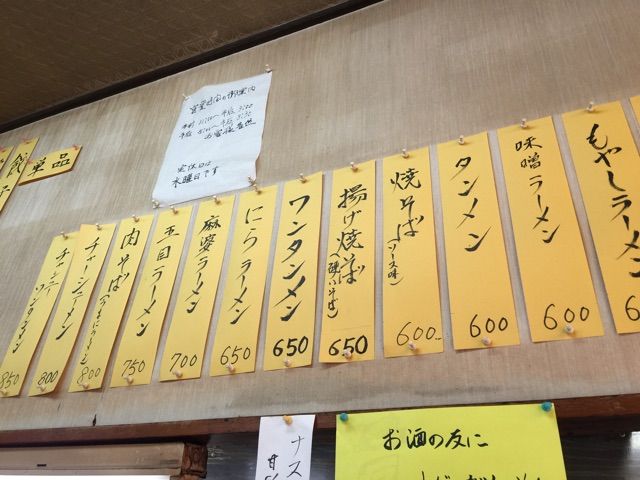 営業時間の御案内
定休日は
水曜日です
単品
もやしラーメン
味噌ラーメン
600
タンメン
600
焼そば
(ソース味)
600
揚げ焼そば
(硬いそば)
650
ワンタンメン
650
にらラーメン
650
麻婆ラーメン
700
五目ラーメン
750
肉そば
800
チャーシューメン
800
チャーシュー
ワンタンメン
850
ナス
お酒の友に